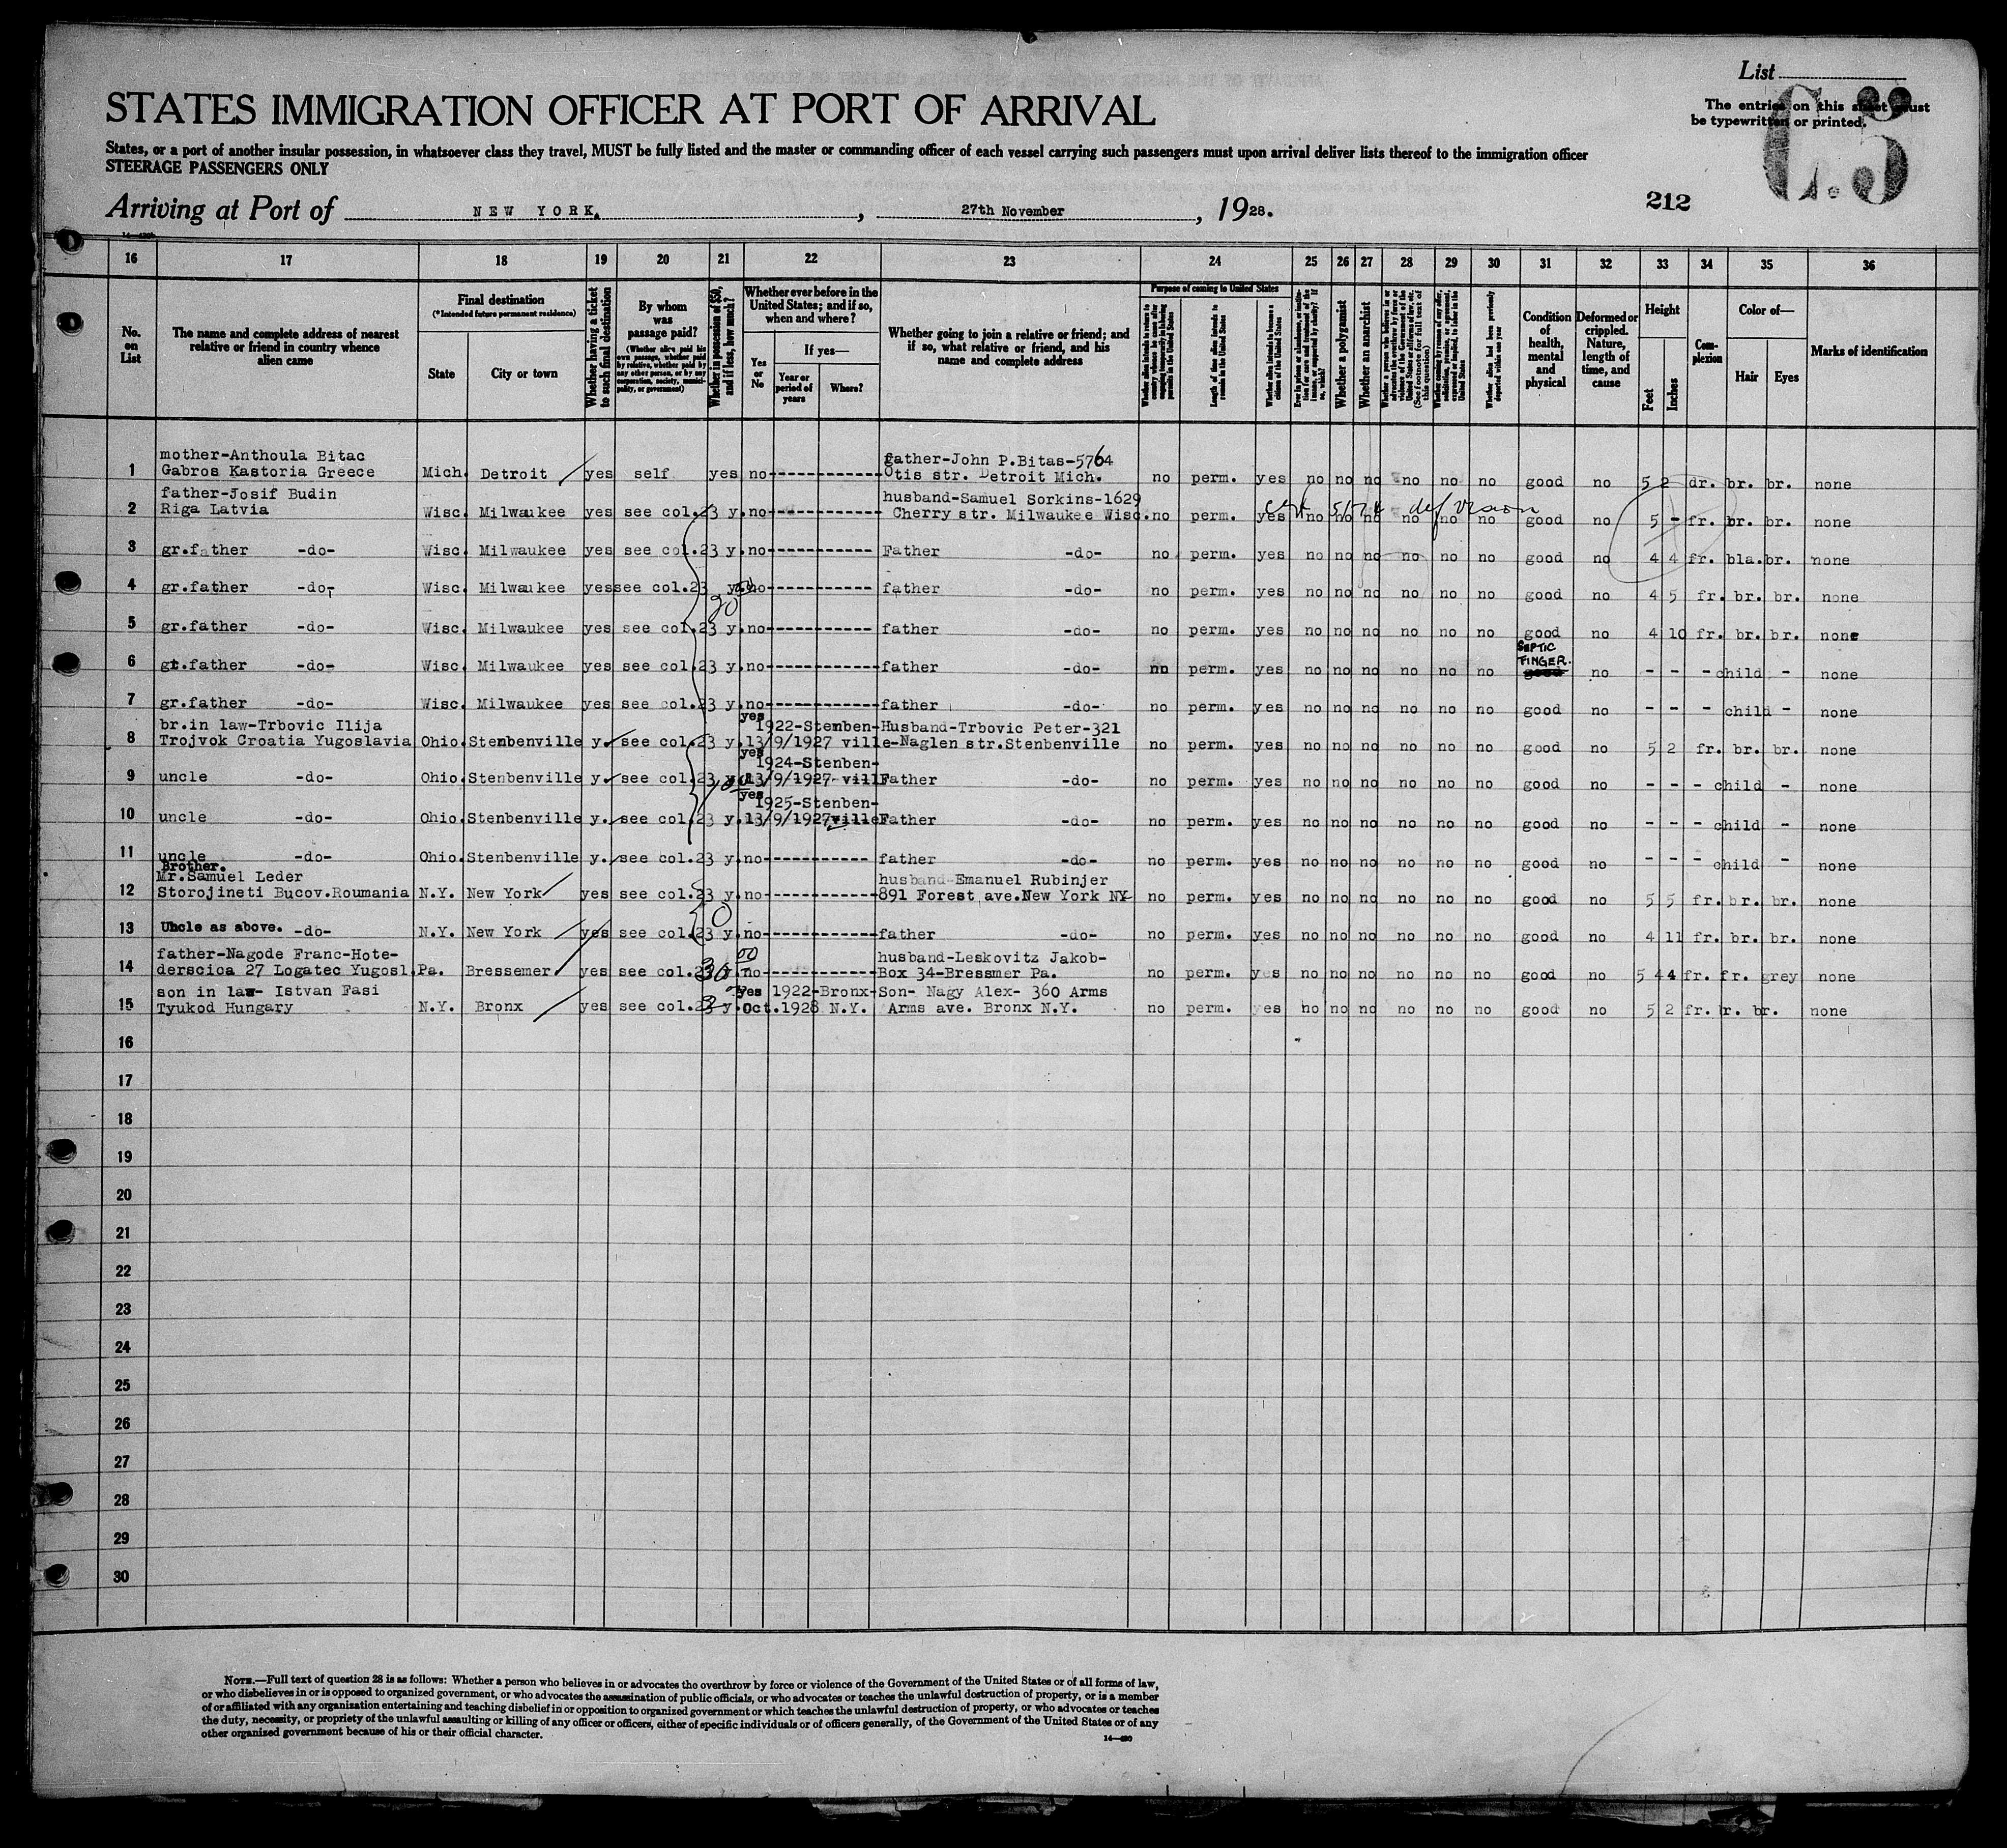 List
The entries on this sheet must
be typewritten or printed.
C.3
STATES IMMIGRATION OFFICER AT PORT OF ARRIVAL
States, or a port of another insular possession, in whatsoever class they travel, MUST be fully listed and the master or commanding officer of each vessel carrying such passengers must upon arrival deliver lists thereof to the immigration officer
STEERAGE PASSENGERS ONLY
Arriving at Port of NEW YORK, 27th November, 1928.
212
16 17 18 19 20 21 22 23 24 25 26 27 28 29 30 31 32 33 34 35 36
No. on List
The name and complete address of nearest relative or friend in country whence alien came
Final destination (*Intended future permanent residence)
State
City or town
Whether having a ticket to such final destination
By whom was passage paid?
(Whether alien paid his own passage, whether paid by relative, whether paid by any other person, or by any corporation, society, municipality, or government)
Whether in possession of $50, and if less, how much?
Whether ever before in the United States; and if so, when and where?
Yes or No
If yes—
Year or period of years
Where?
Whether going to join a relative or friend; and if so, what relative or friend, and his name and complete address
Purpose of coming to United States
Length of time alien intends to remain in the United States
Whether alien intends to become a citizen of the United States
Whether a polygamist
Whether an anarchist
Condition of health, mental and physical
Deformed or crippled. Nature, length of time, and cause
Height
Feet
Inches
Complexion
Color of—
Hair
Eyes
Marks of identification
1 mother-Anthoula Bitac
Gabros Kastoria Greece Mich. Detroit yes self yes no father-John P.Bitas-5764
Otis str. Detroit Mich. no perm. yes no no no no no no good no 5 2 dr. br. br. none
2 father-Josif Budin
Riga Latvia Wisc. Milwaukee yes see col.23 y. no husband-Samuel Sorkins-1629
Cherry str. Milwaukee Wisc. no perm. yes no no no no no no good no 5 - fr. br. br. none
def vision
3 gr.father -do- Wisc. Milwaukee yes see col.23 y. no Father -do- no perm. yes no no no no no no good no 4 4 fr. bla. br. none
4 gr.father -do- Wisc. Milwaukee yes see col.23 y. no father -do- no perm. yes no no no no no no good no 4 5 fr. br. br. none
5 gr.father -do- Wisc. Milwaukee yes see col.23 y. no father -do- no perm. yes no no no no no no good no 4 10 fr. br. br. none
6 gr.father -do- Wisc. Milwaukee yes see col.23 y. no father -do- no perm. yes no no no no no no SEPTIC FINGER. good no - - - child - none
7 gr.father -do- Wisc. Milwaukee yes see col.23 y. no father -do- no perm. yes no no no no no no good no - - - child - none
8 br.in law-Trbovic Ilija
Trojvok Croatia Yugoslavia Ohio. Stenbenville y. see col.23 y. yes 1922-Stenben-
13/9/1927 ville Husband-Trbovic Peter-321
-Naglen str.Stenbenville no perm. yes no no no no no no good no 5 2 fr. br. br. none
9 uncle -do- Ohio. Stenbenville y. see col.23 yes 1924-Stenben-
13/9/1927 ville Father -do- no perm. yes no no no no no no good no - - - child - none
10 uncle -do- Ohio. Stenbenville y. see col.23 y. yes 1925-Stenben-
13/9/1927 ville Father -do- no perm. yes no no no no no no good no - - - child - none
11 uncle -do- Ohio. Stenbenville y. see col.23 y. no father -do- no perm. yes no no no no no no good no - - - child - none
12 Brother.
Mr.Samuel Leder
Storojineti Bucov.Roumania N.Y. New York yes see col.23 y. no husband-Emanuel Rubinjer
891 Forest ave.New York NY no perm. yes no no no no no no good no 5 5 fr. br. br. none
13 Uncle as above. -do- N.Y. New York yes see col.23 y. no father -do- no perm. yes no no no no no no good no 4 11 fr. br. br. none
14 father-Nagode Franc-Hote-
derscica 27 Logatec Yugosl. Pa. Bressemer yes see col. no husband-Leskovitz Jakob-
Box 34-Bressmer Pa. no perm. yes no no no no no no good no 5 4 fr. fr. grey none
15 son in law- Istvan Fasi
Tyukod Hungary N.Y. Bronx yes see col. y. yes 1922-Bronx-
oct.1928 N.Y. Son- Nagy Alex- 360 Arms
Arms ave. Bronx N.Y. no perm. yes no no no no no no good no 5 2 fr. br. none
16
17
18
19
20
21
22
23
24
25
26
27
28
29
30
NOTE.—Full text of question 28 is as follows: Whether a person who believes in or advocates the overthrow by force or violence of the Government of the United States or of all forms of law,
or who disbelieves in or is opposed to organized government, or who advocates the assassination of public officials, or who advocates or teaches the unlawful destruction of property, or is a member
of or affiliated with any organization entertaining and teaching disbelief in or opposition to organized government or which teaches the unlawful destruction of property, or who advocates or teaches
the duty, necessity, or propriety of the unlawful assaulting or killing of any officer or officers, either of specific individuals or of officers generally, of the Government of the United States or of any
other organized government because of his or their official character.
14—420